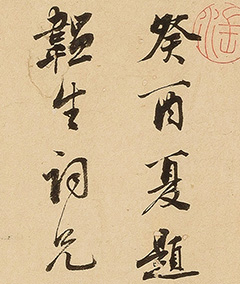 癸酉夏題
韞生詞兄